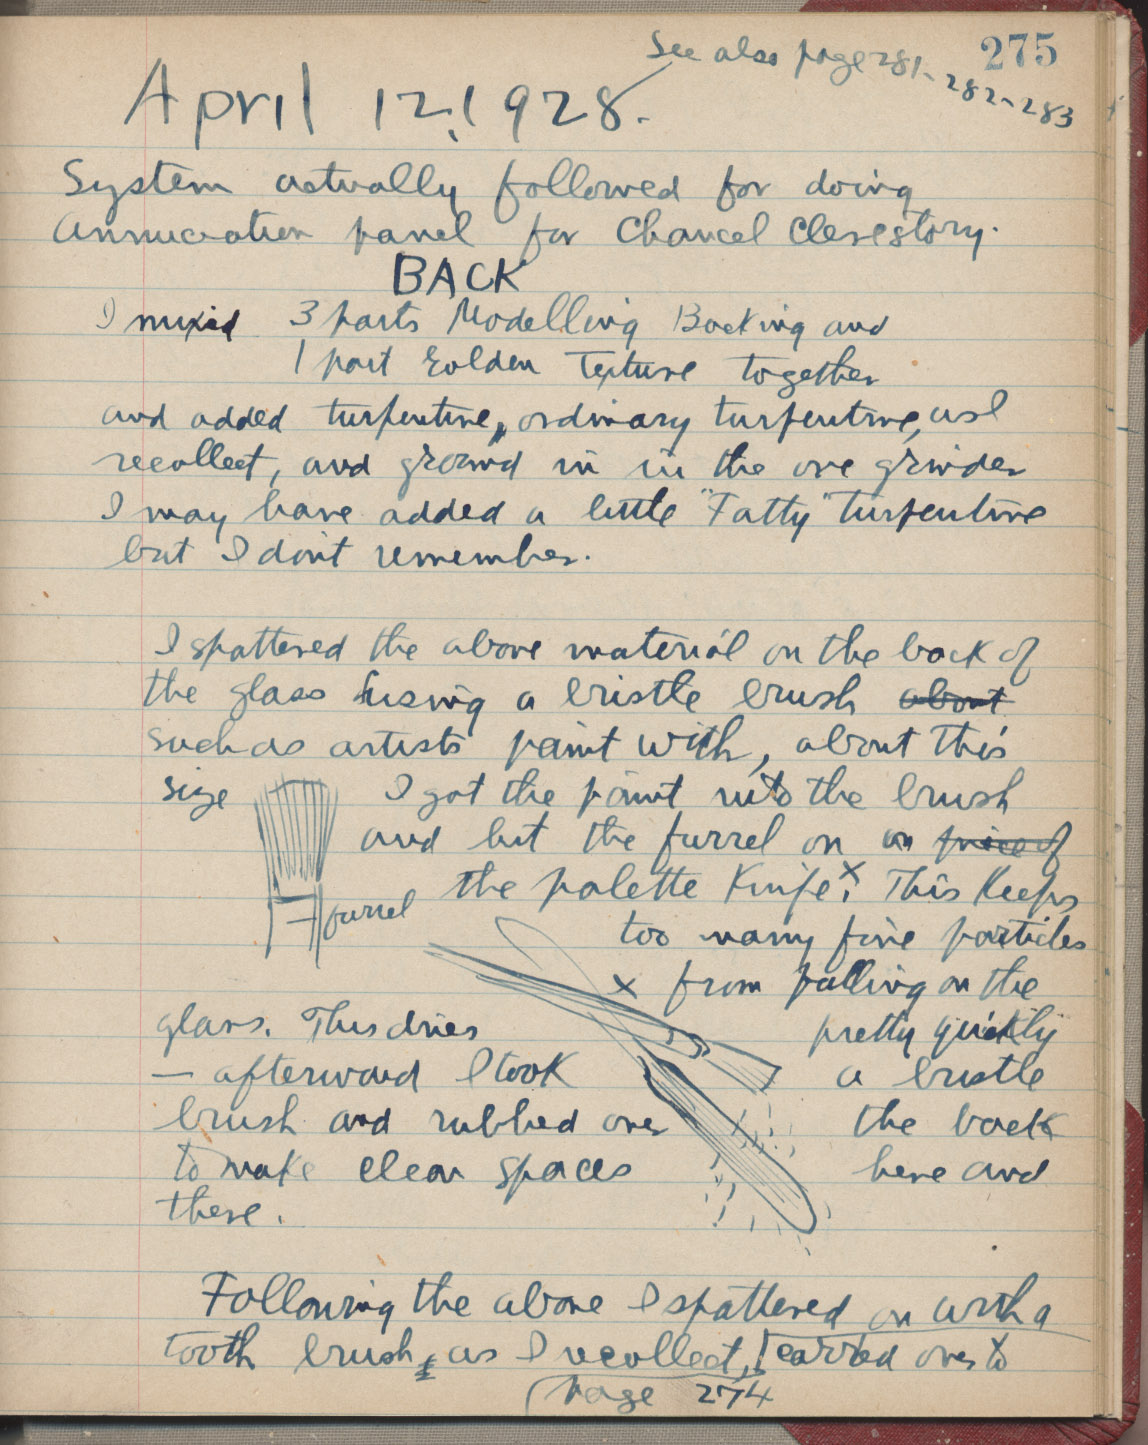 See also page 281-
282-283
275
April 12, 1928.
System actually followed for doing
Annuciation panel for Chancel Clerestory.
BACK
I mixed 3 parts Modelling Backing and
1 part Golden Texture together
and added turpentine, ordinary turpentine, as I
recollect, and ground in in the one grinder
I may have added a little "Fatty" turpentine
but I don't remember.
I spattered the above material on the back of
the glass using a bristle brush about
such as artists paint with, about this
size I got the paint into the brush
and hit the furrel on piece of
the palette Knife x. This Keeps
furrel
too many fine particles
x from falling on the
glass. This dries pretty quickly
— afterward I took a bristle
brush and rubbed over the back
to make clear spaces here and
there.
Following the above I spattered on with a
tooth brush, as I recollect, (carried over to
page 274